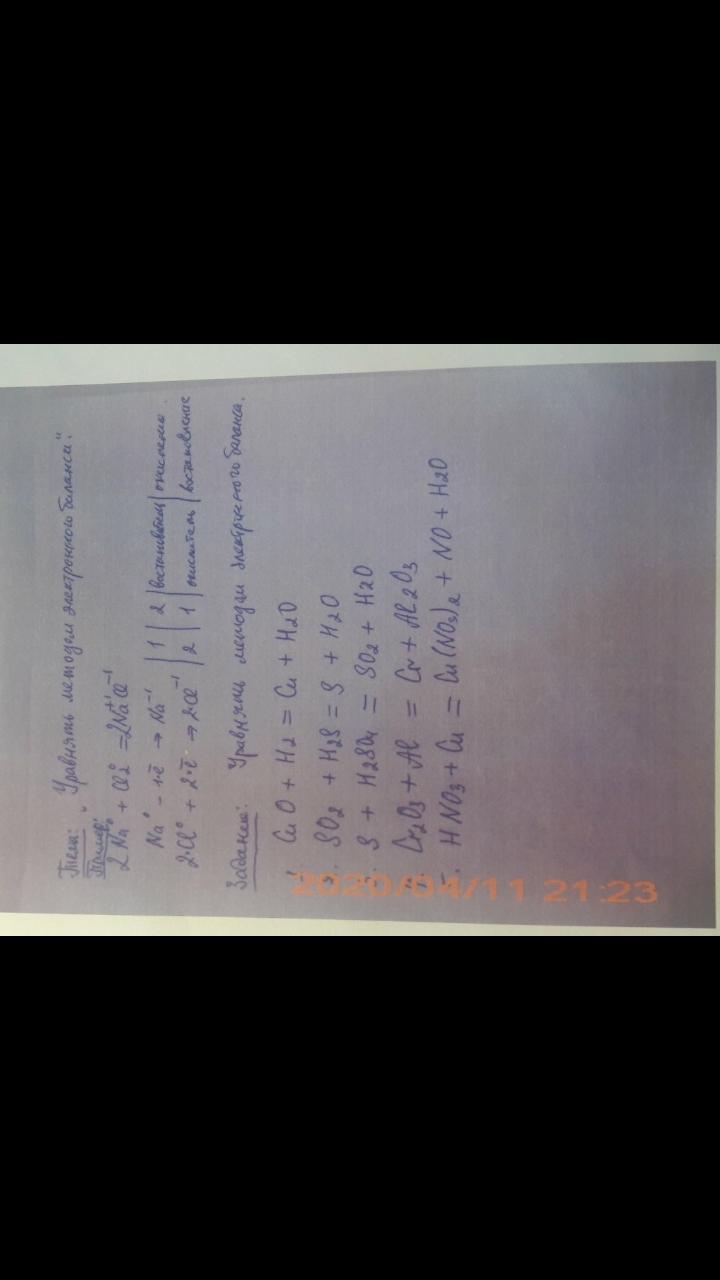 Тема: "Уравнять методом электронного баланса".
Пример:
2Na⁰ + Cl₂⁰ = 2Na⁺¹Cl⁻¹
Na⁰ - 1ē → Na⁻¹ | 1 | 2 | востановитель | окисление
2·Cl⁰ + 2·ē → 2·Cl⁻¹ | 2 | 1 | окислитель | востановление
Задание: Уравнять методом электрического баланса.
1. CuO + H₂ = Cu + H₂O
2. SO₂ + H₂S = S + H₂O
3. S + H₂SO₄ = SO₂ + H₂O
4. Cr₂O₃ + Al = Cr + Al₂O₃
5. HNO₃ + Cu = Cu(NO₃)₂ + NO + H₂O
2020/04/11 21:23